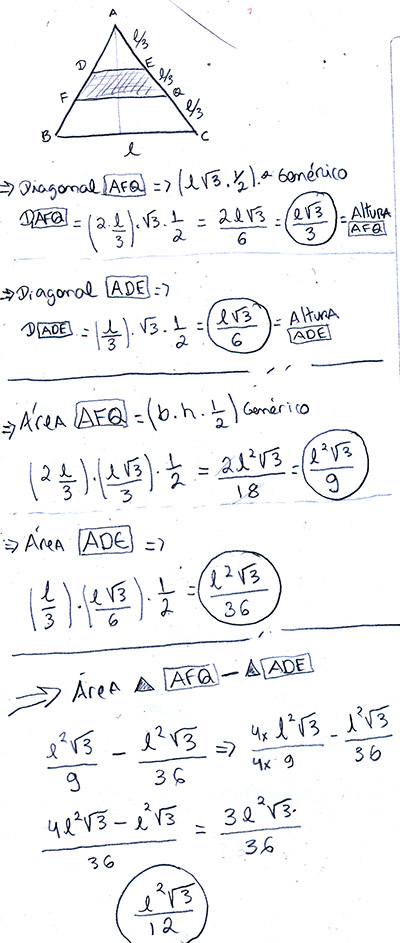 A
l/3
D E l/3
F Q l/3
B C
l
⇒ Diagonal AFQ ⇒ (l√3 . 1/2) . Genérico
D AFQ = (2 . l/3) . √3 . 1/2 = 2l√3/6 = l√3/3 = Altura AFQ
⇒ Diagonal ADE ⇒
D ADE = (l/3) . √3 . 1/2 = l√3/6 = Altura ADE
⇒ Área AFQ = (b . h . 1/2) Genérico
(2 l/3) . (l√3/3) . 1/2 = 2l²√3/18 = l²√3/9
⇒ Área ADE ⇒
(l/3) . (l√3/6) . 1/2 = l²√3/36
⇒ Área △ AFQ − △ ADE
l²√3/9 − l²√3/36 ⇒ 4x l²√3/4x 9 − l²√3/36
4l²√3 − l²√3/36 = 3l²√3/36
l²√3/12